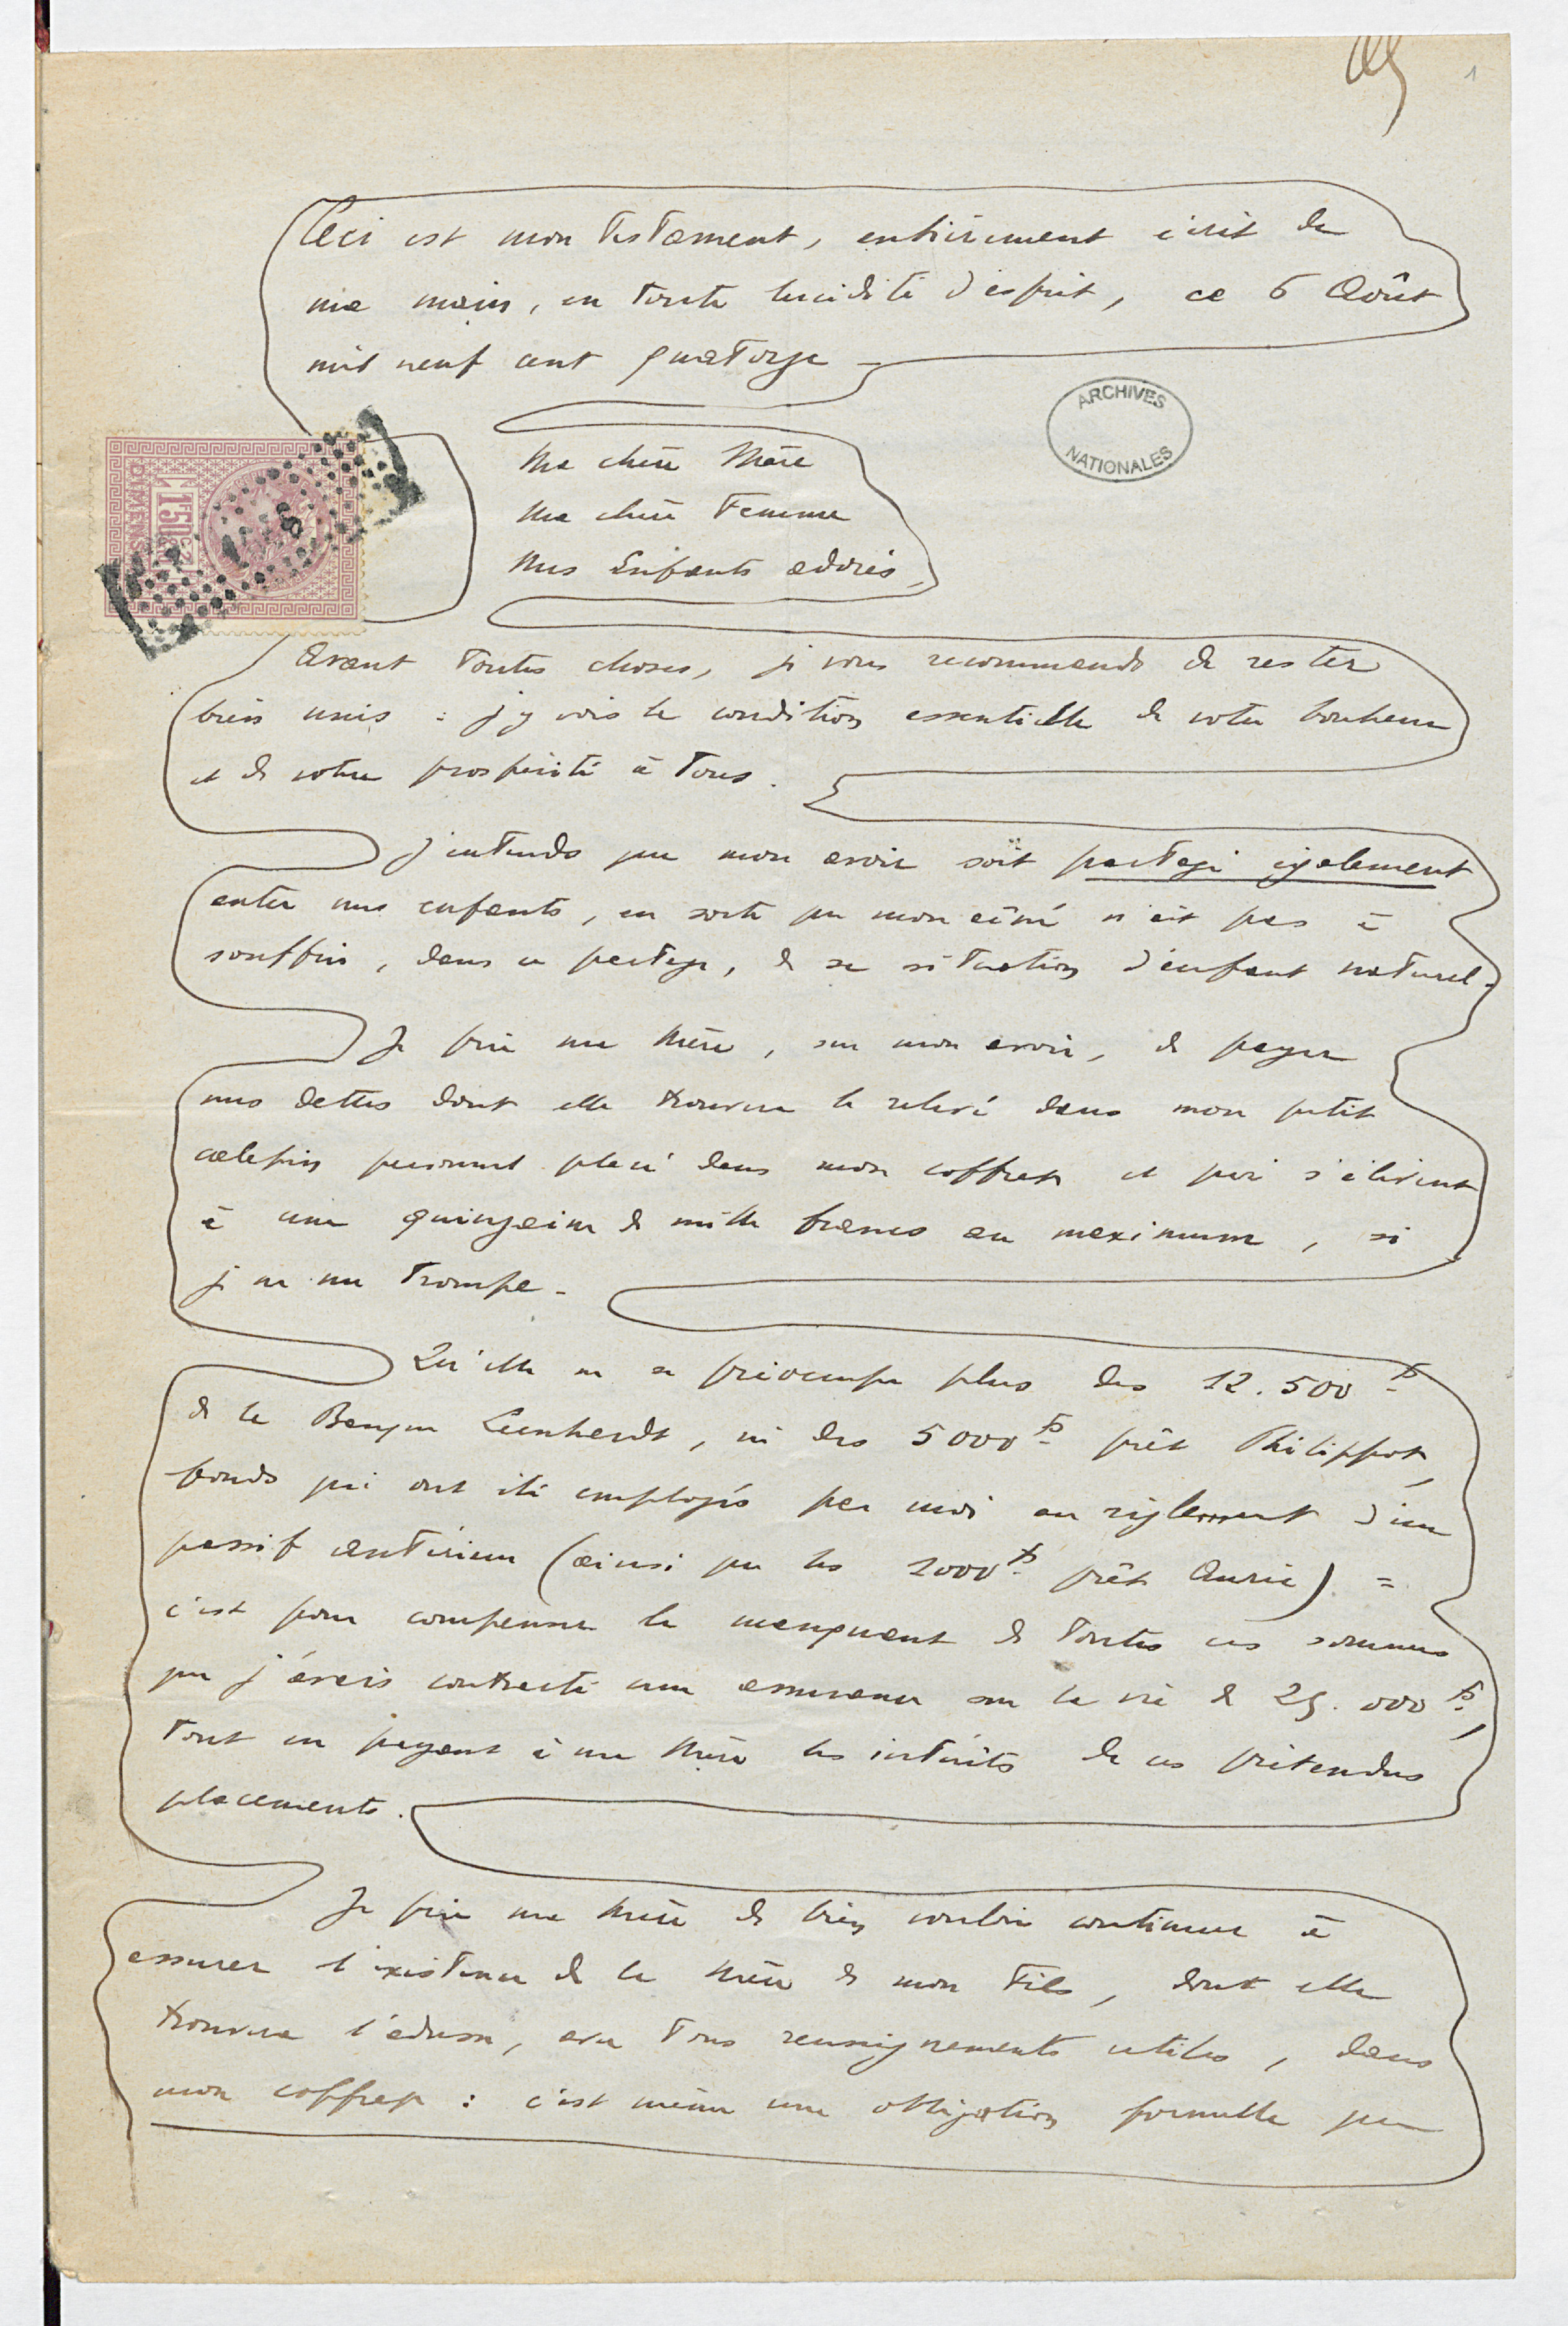 1
Ceci est mon testament, entièrement écrit de
ma main, en toute lucidité d'esprit, ce 6 Août
mil neuf cent quatorze -
ARCHIVES
NATIONALES
1F50c
DIMENSION
Ma chère Mère
Ma chère Femme
Mes Enfants adorés,
Avant toutes choses, je vous recommande de rester
bien unis : j'y vois la condition essentielle de votre bonheur
et de votre prospérité à tous.
J'entends que mon avoir soit partagé également
entre mes enfants, en sorte que mon aîné n'ait pas à
souffrir, dans ce partage, de sa situation d'enfant naturel.
Je prie ma Mère, sur mon avoir, de payer
mes dettes dont elle trouvera le relevé dans mon petit
calepin personnel placé dans mon coffret et qui s'élèvent
à une quinzaine de mille francs au maximum, si
je ne me trompe -
Qu'elle ne se préoccupe plus des 12.500 fs
de la Banque Leenhardt, ni des 5000 fs prêt Philippot,
fonds qui ont été employés par moi au règlement d'un
passif antérieur (ainsi que les 2000 fs prêt Aurié) =
c'est pour compenser le manquant de toutes ces sommes
que j'avais contracté une assurance sur la vie de 25.000 fs,
tout en payant à ma Mère les intérêts de ces prétendus
placements.
Je prie ma Mère de bien vouloir continuer à
assurer l'existence de la Mère de mon Fils, dont elle
trouvera l'adresse, avec tous renseignements utiles, dans
mon coffret : c'est même une obligation formelle que